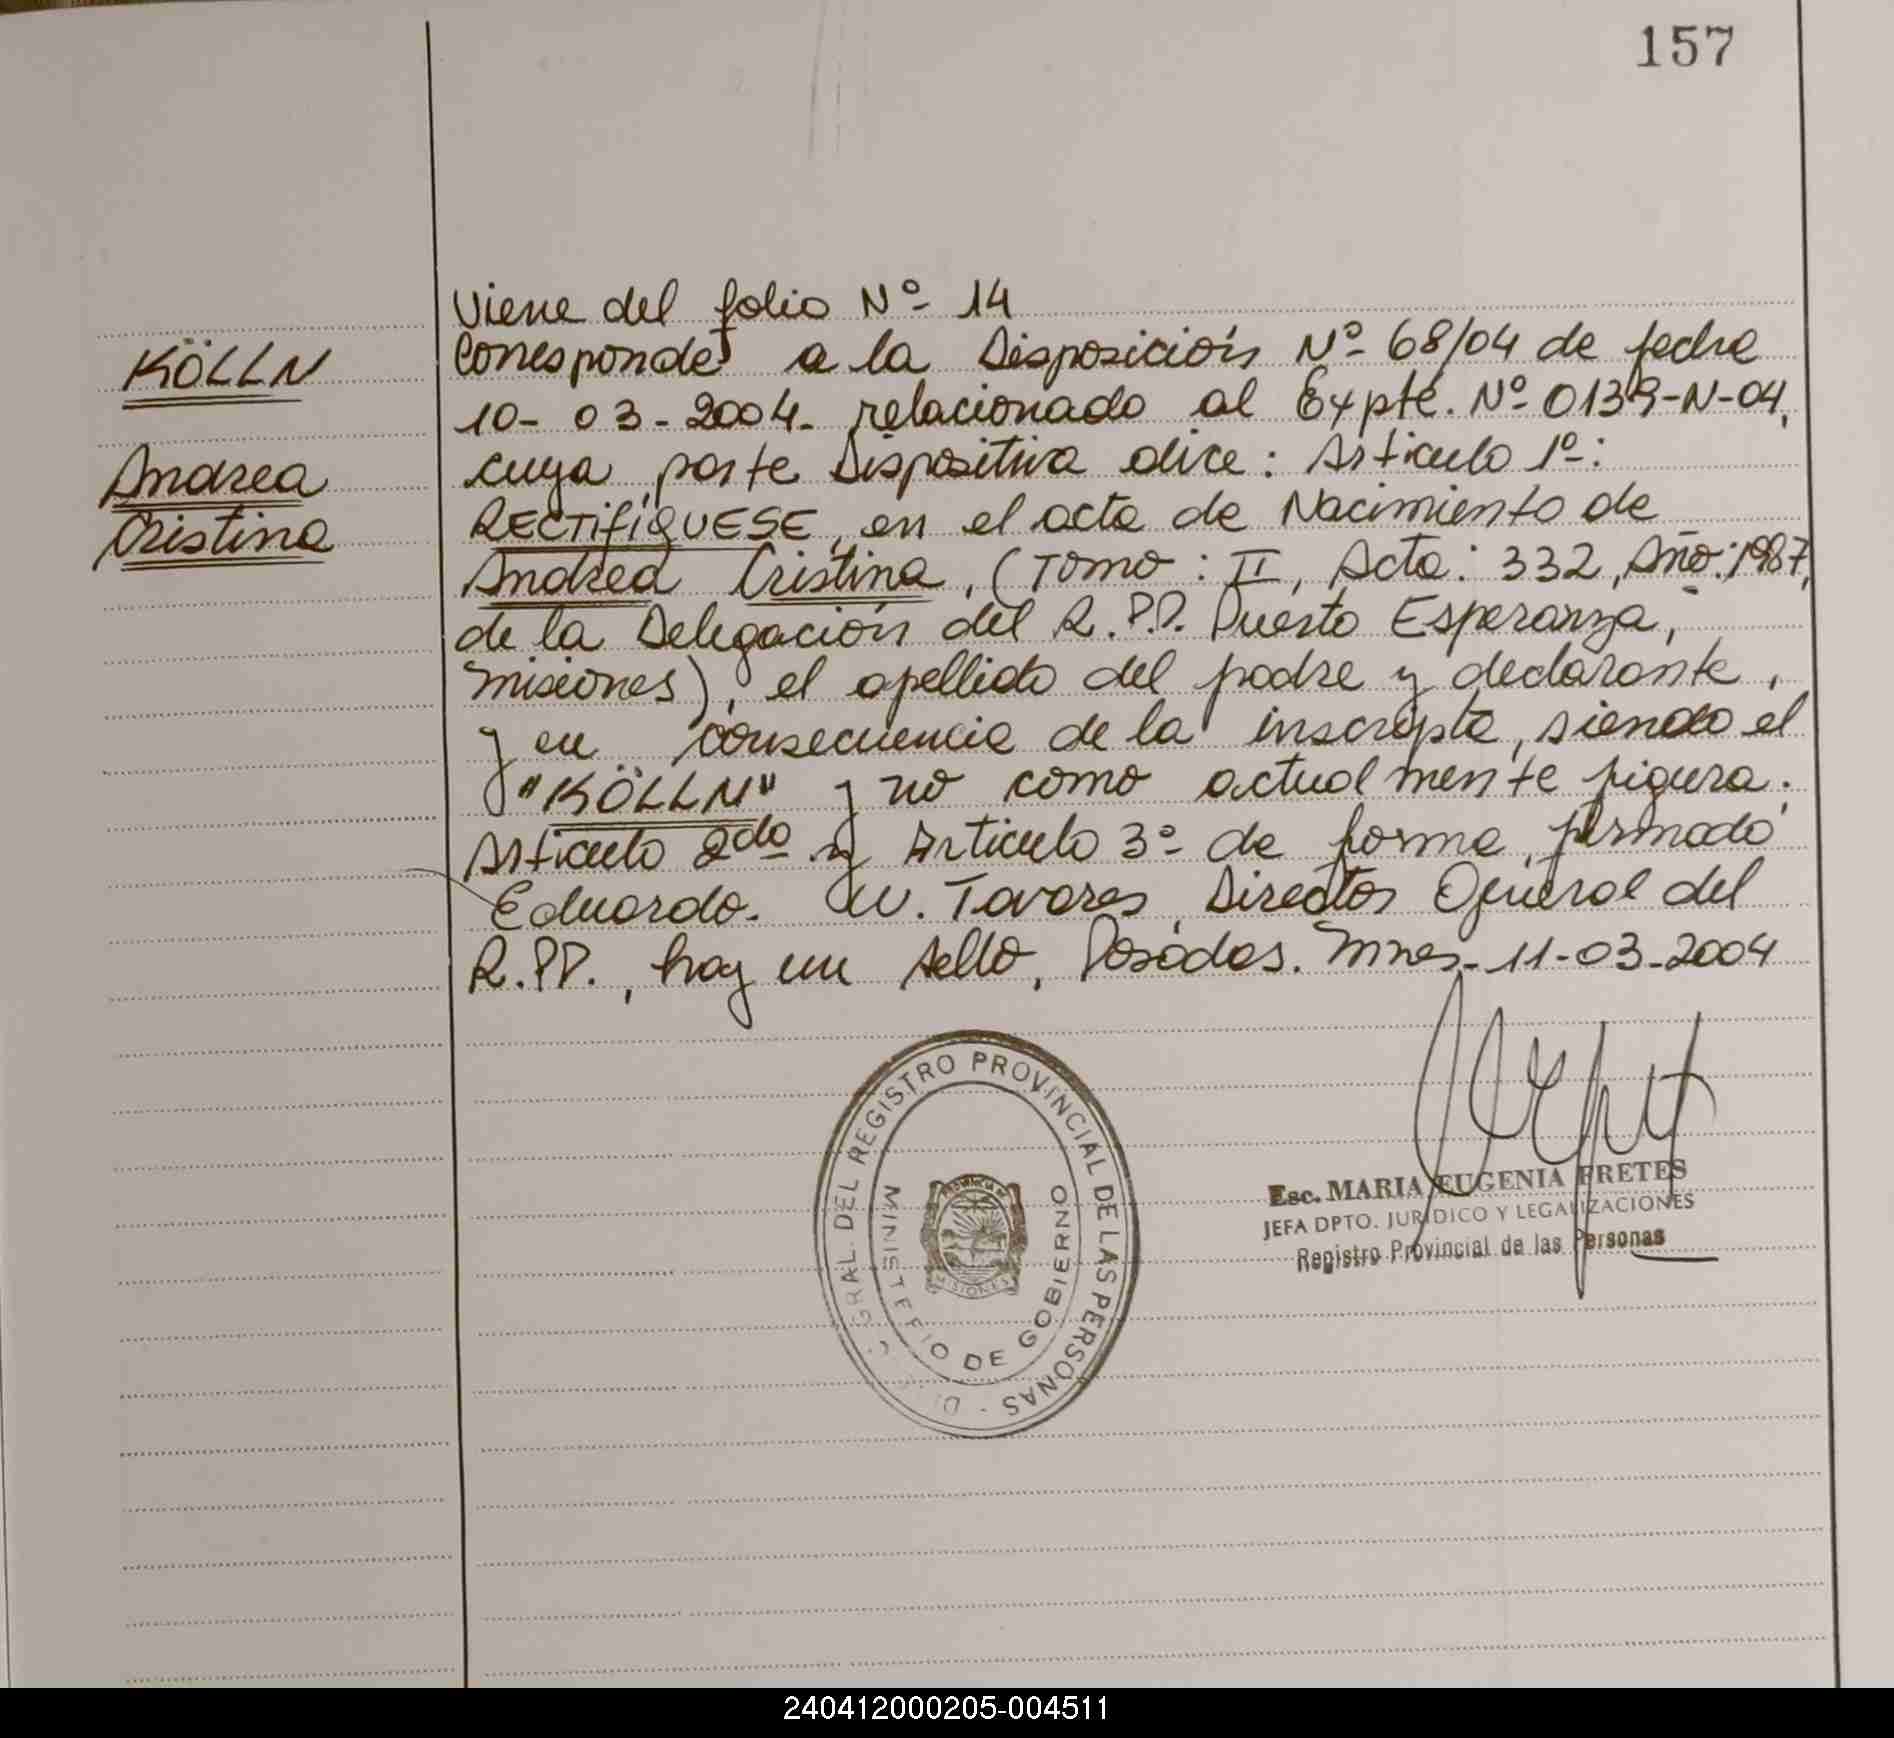 157
Viene del folio Nº 14
KÖLLN
Andrea
Cristina
Corresponde a la Disposición Nº 68/04 de fecha
10-03-2004. relacionado al Expte. Nº 0139-N-04,
cuya parte Dispositiva dice: Artículo 1º:
RECTIFIQUESE, en el acta de Nacimiento de
Andrea Cristina, (Tomo: II, Acta: 332, Año: 1987,
de la Delegación del R.P.P. Puerto Esperanza,
Misiones), el apellido del padre y declarante,
y en consecuencia de la inscripta, siendo el
"KÖLLN" y no como actualmente figura.
Artículo 2do y Artículo 3º de forma, firmado
Eduardo. W. Tavares, Director General del
R.PP., hay un sello, Posadas. Mnes. 11-03-2004
GRAL. DEL REGISTRO PROVINCIAL DE LAS PERSONAS
MINISTERIO DE GOBIERNO
PROVINCIA DE
MISIONES
Esc. MARIA EUGENIA FRETES
JEFA DPTO. JURIDICO Y LEGALIZACIONES
Registro Provincial de las Personas
240412000205-004511